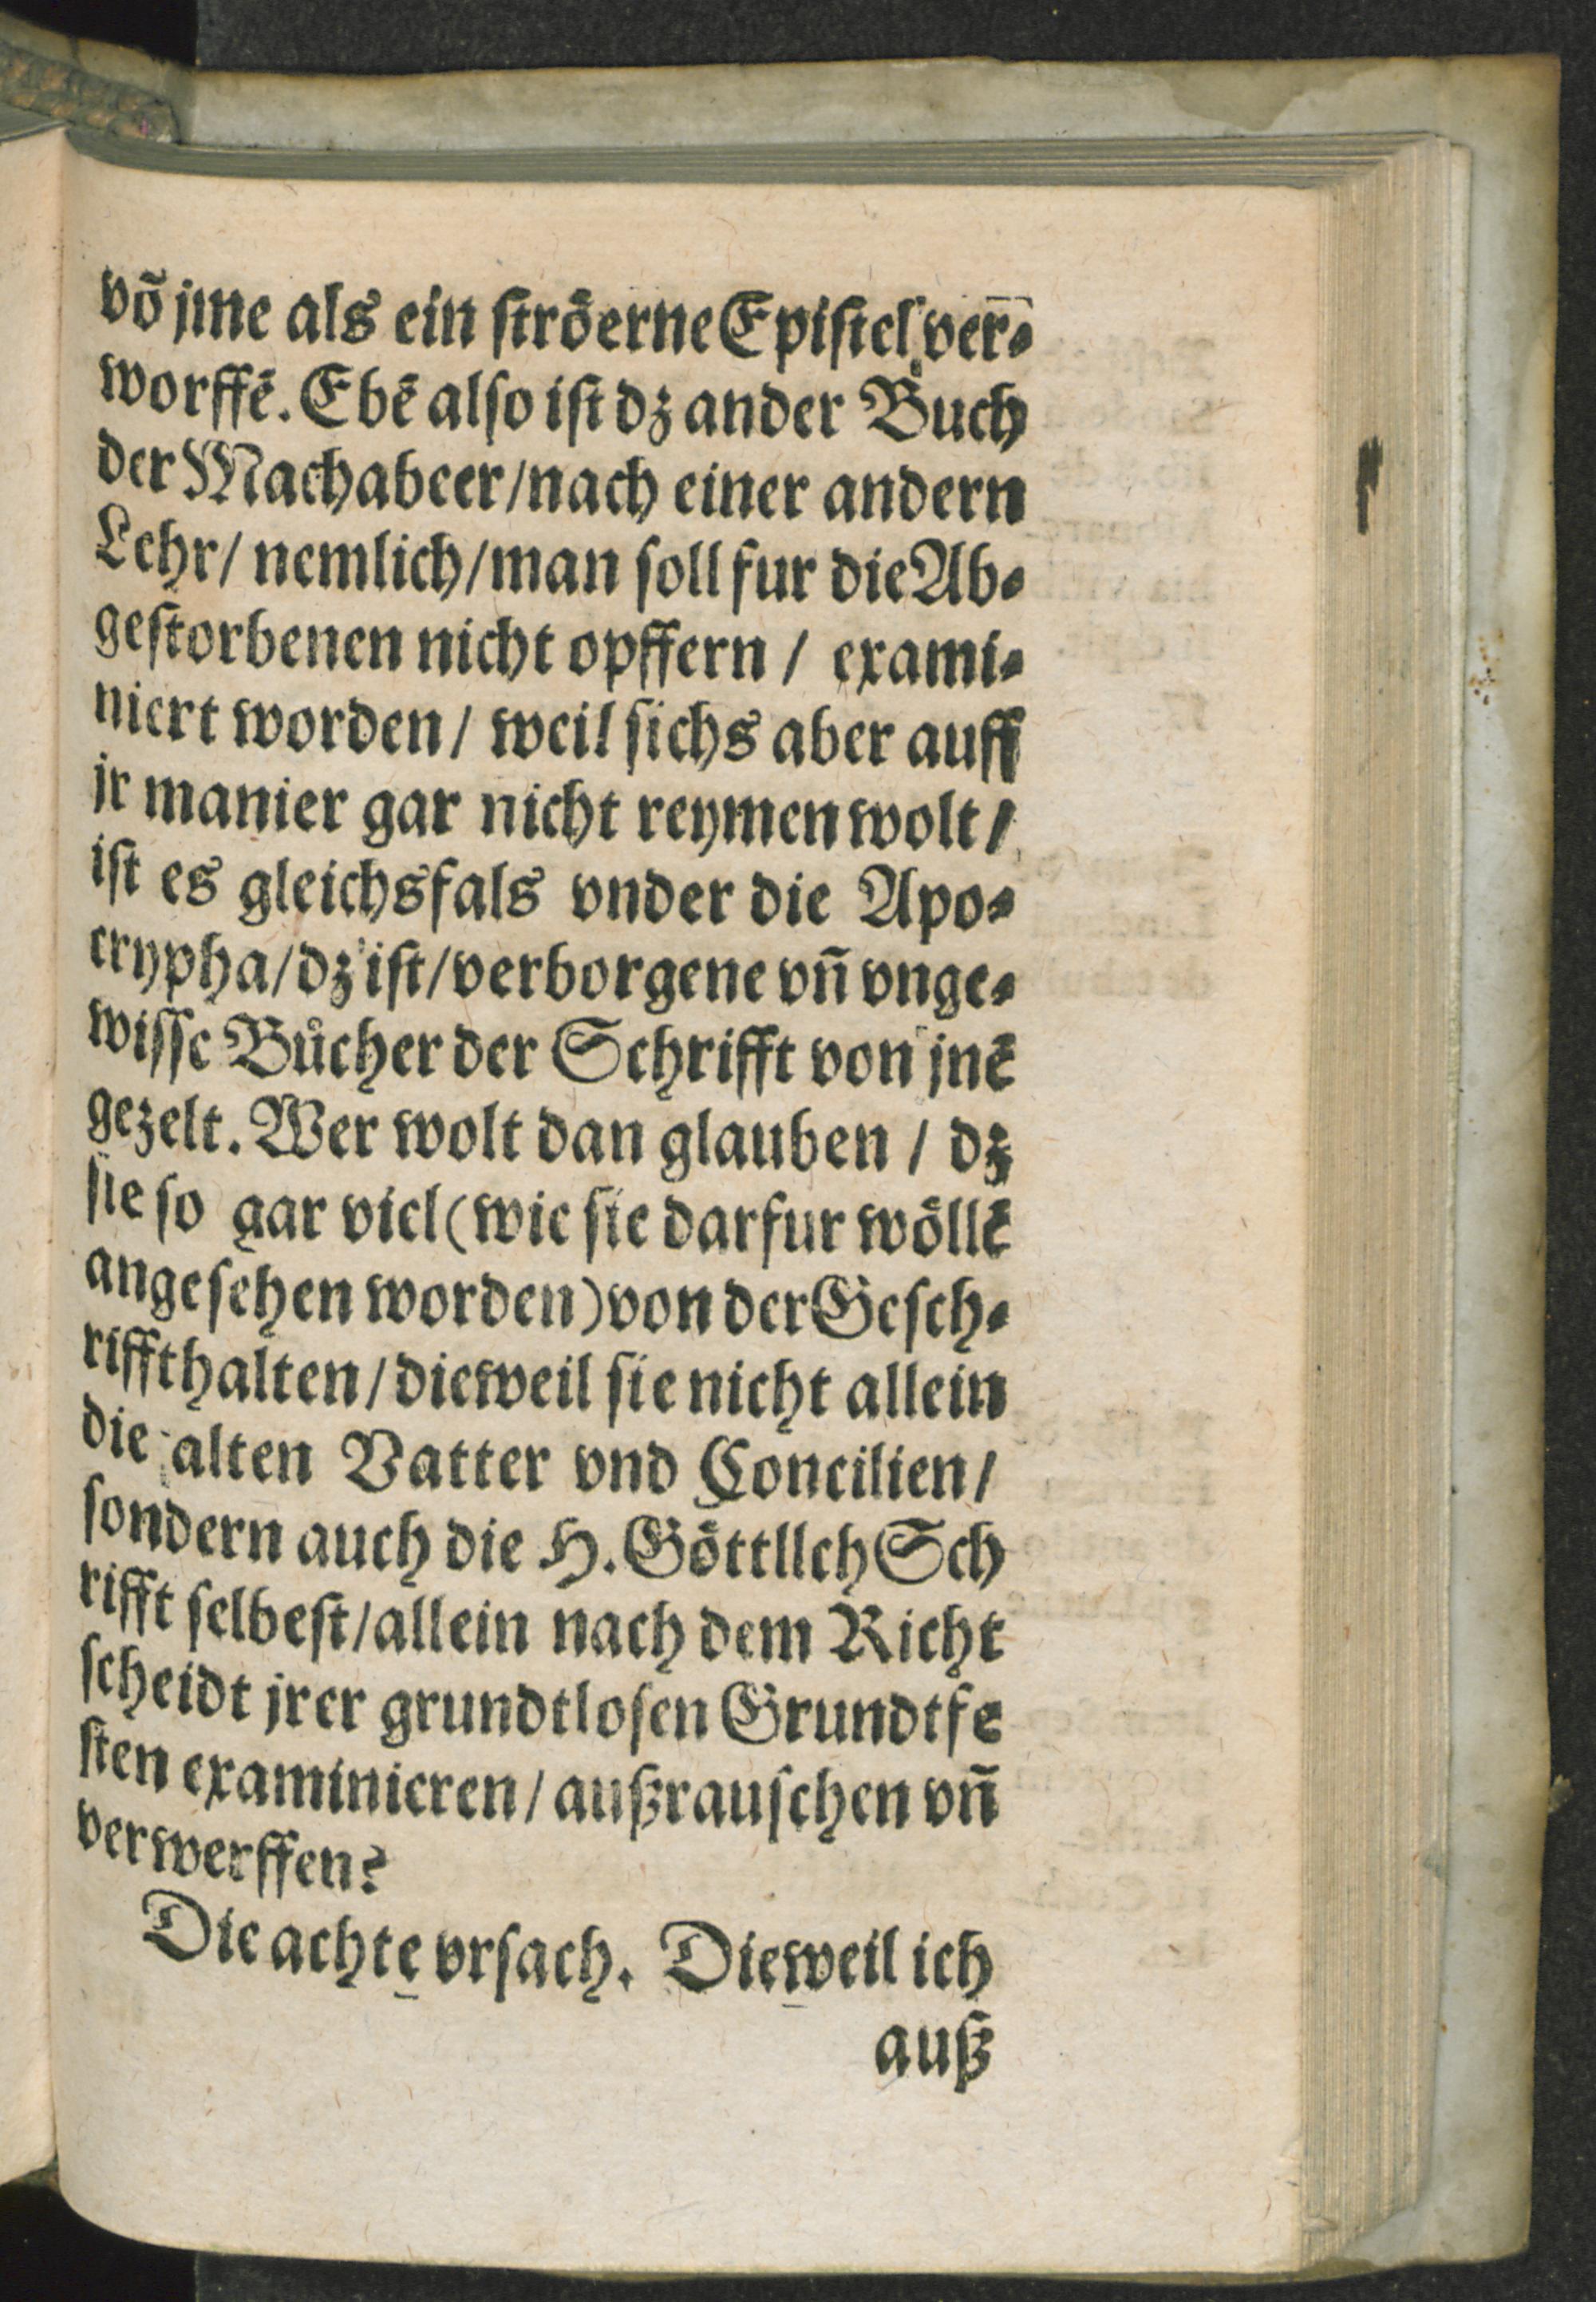 võ jme als ein ströerne Epistel ver⸗
worffẽ. Ebẽ also ist dz ander Buch
der Machabeer/nach einer andern
Lehr/ nemlich/man soll fur die Ab⸗
gestorbenen nicht opffern / exami⸗
niert worden/ weil sichs aber auff
jr manier gar nicht reymen wolt/
ist es gleichsfals vnder die Apo⸗
crypha/dz ist/verborgene vñ vnge⸗
wisse Bůcher der Schrifft von jnẽ
gezelt. Wer wolt dan glauben / dz
sie so gar viel (wie sie darfur wöllẽ
angesehen worden) von der Gesch⸗
riffthalten/dieweil sie nicht allein
die alten Vatter vnd Concilien/
sondern auch die H. Göttllch Sch
rifft selbest/allein nach dem Richt
scheidt jrer grundtlosen Grundtfe
sten examinieren/außrauschen vñ
verwerffen?
Die achte vrsach. Dieweil ich
auß